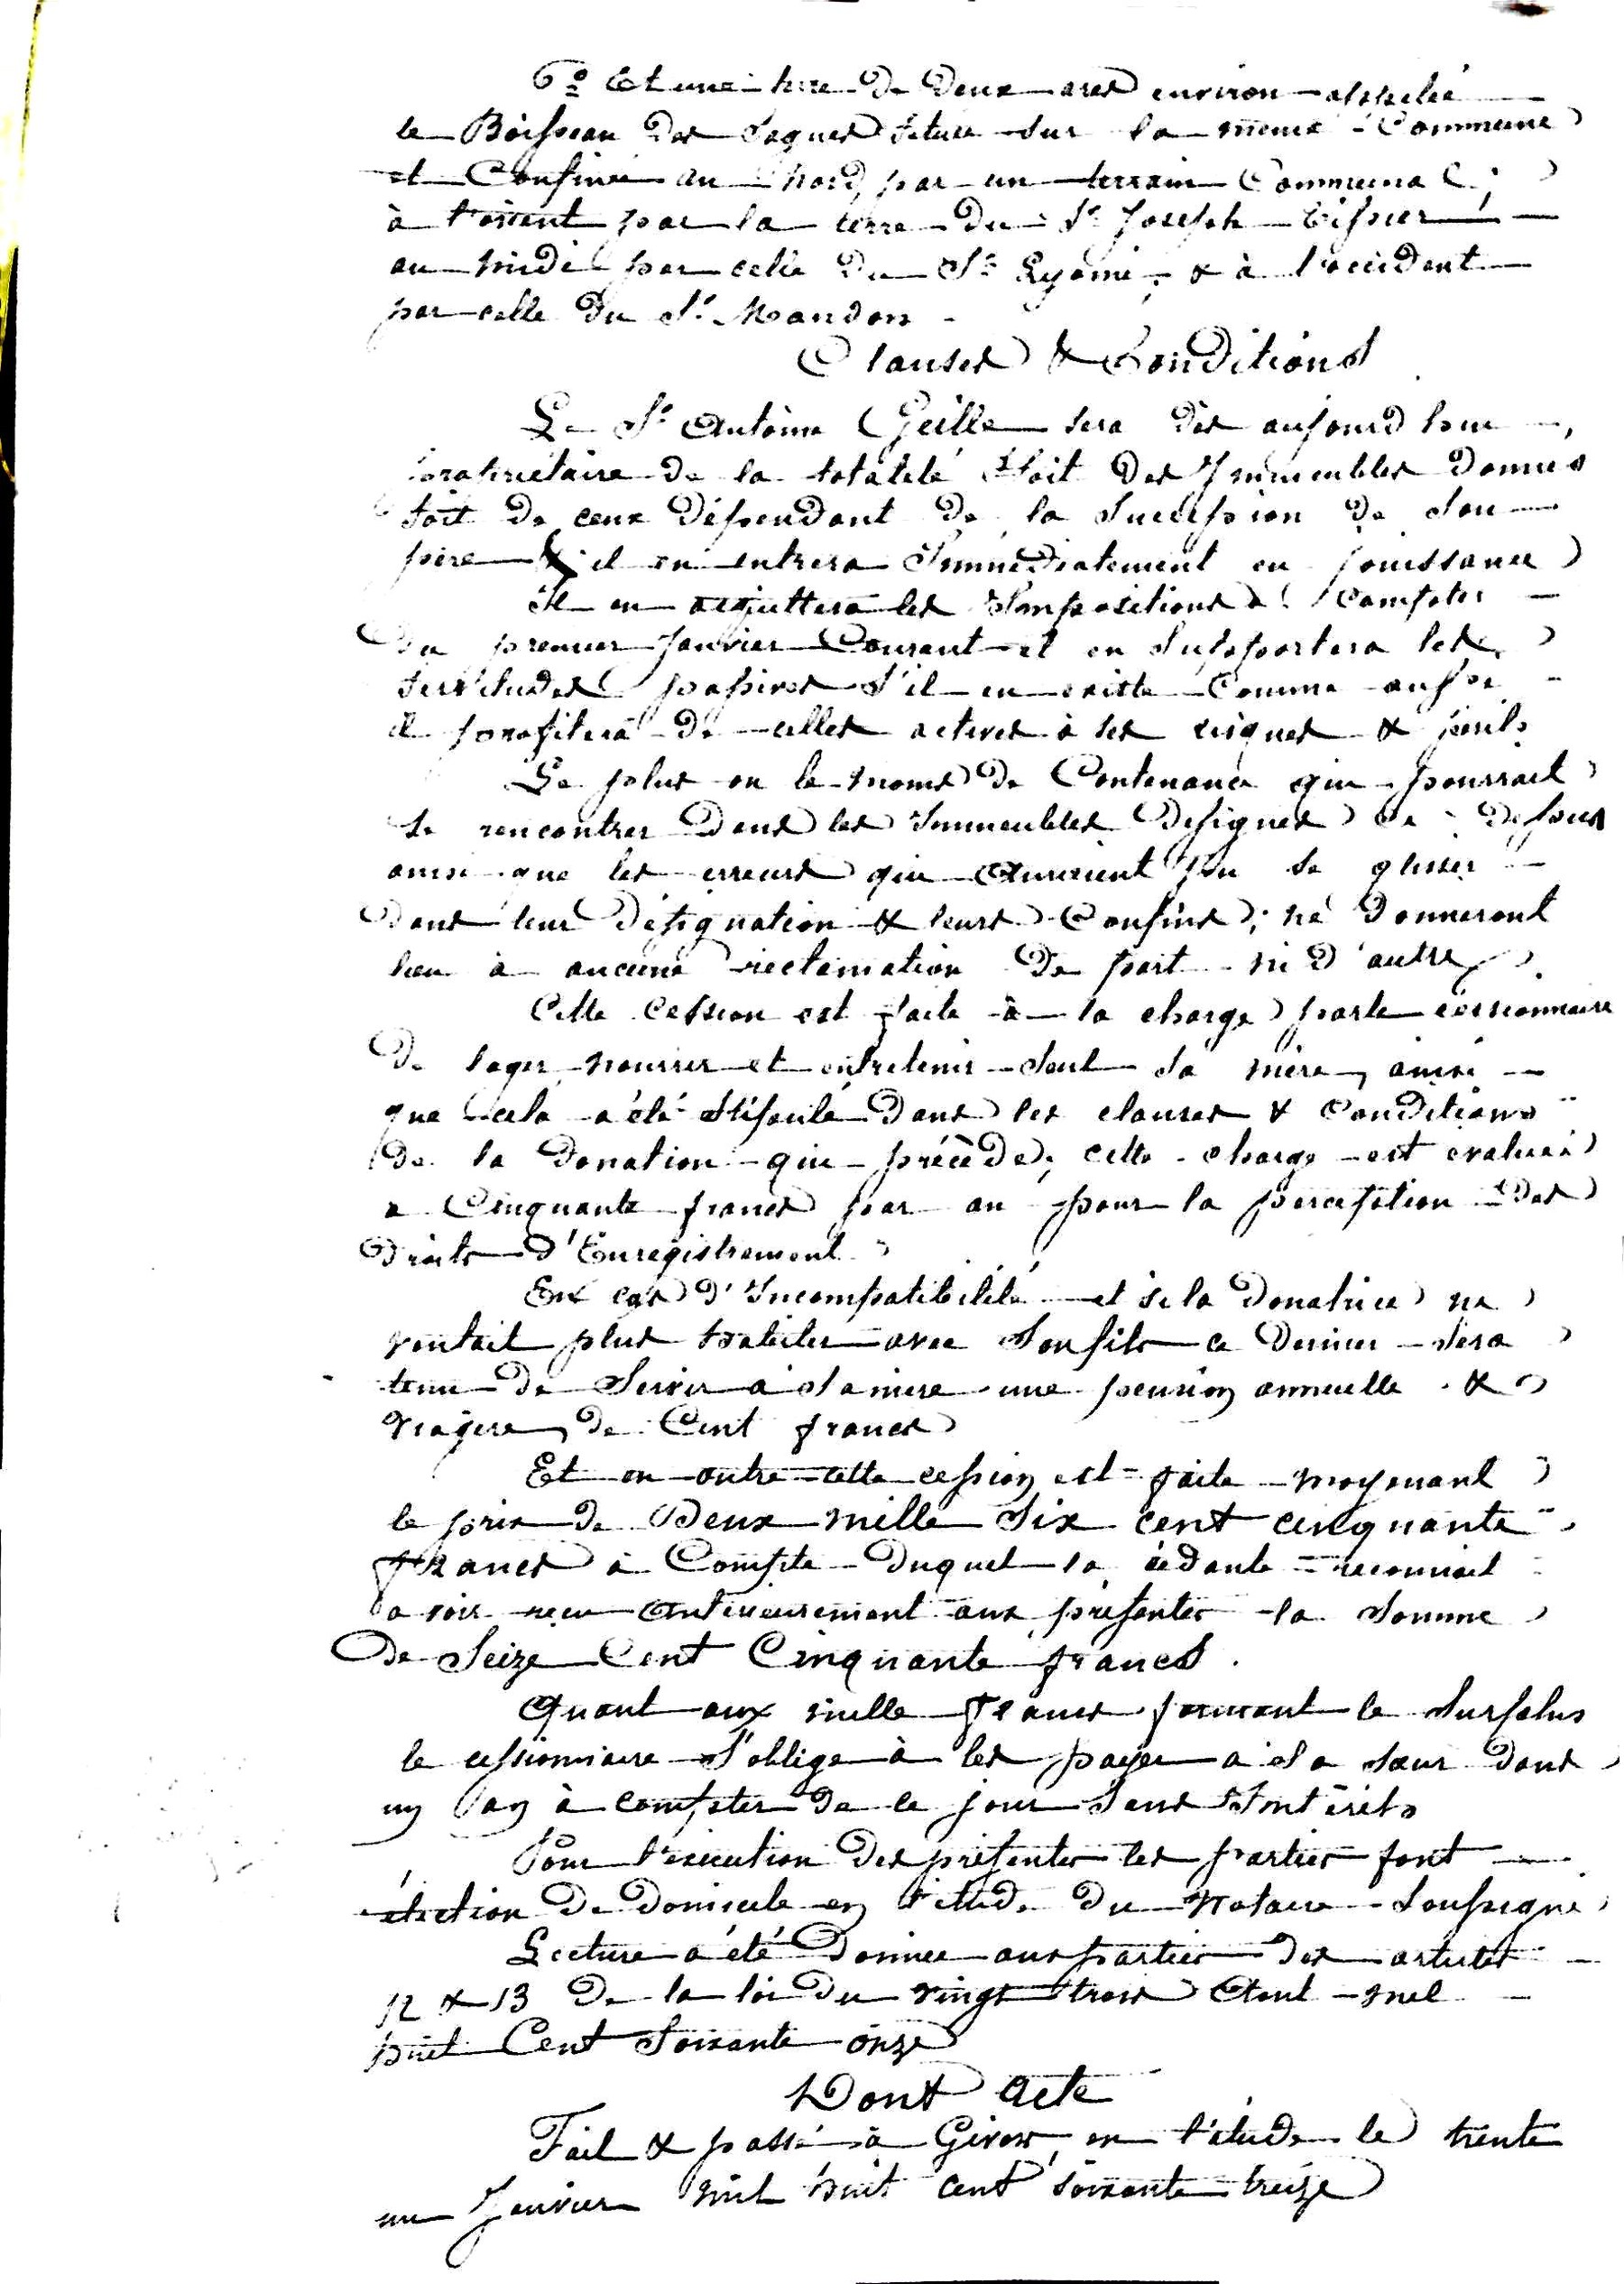 6º Et une terre de deux ares environ appelée
le Boisseau des Saques située sur la même Commune
et Confinée au nord, par un terrain Communal;
à l'orient par la terre du Sr Joseph
au midi par celle du Sr & à l'occident
par celle du Sr Mandon
Clauses & Conditions
Le Sr Antoine Geille sera dès aujourd'hui,
propriétaire de la totalité soit des Immeubles donnés
soit de ceux dépendant de la Succession de son
père & il en entrera Immédiatement en jouissance
Il en acquittera les Impositions à Compter
du premier Janvier Courant et en Supportera les
servitudes passives s'il en existe Comme aussi
il profitera de celles actives à ses risques & périls
Le plus ou le moins de Contenance qui pourrait
se rencontrer dans les Immeubles désignés ci-dessus
ainsi que les erreurs qui auraient pu se glisser
dans leur désignation & leurs Confins; ne donneront
lieu à aucune réclamation de part ni d'autre
Cette Cession est faite à la charge par le cessionnaire
de loger nourrir et entretenir seul sa mère, ainsi
que cela a été Stipulé dans les clauses & Conditions
de la donation qui précède; cette charge est évaluée
a Cinquante francs par an pour la perception des
droits d'Enregistrement
En cas d'Incompatibilité et si la donatrice ne
voulait plus habiter avec Son fils ce dernier sera
tenu de Servir à sa mère une pension annuelle &
viagère de Cent francs
Et en outre cette cession est faite moyenant
le prix de Deux mille Six cent cinquante
francs à Compte duquel la cédante reconnait
avoir reçu Antérieurement aux présentes la Somme
de Seize Cent Cinquante francs.
Quant aux mille francs formant le Surplus
le cessionnaire S'oblige à les payer à sa sœur dans
un an à compter de ce jour Sans Intérêts
Pour l'exécution des présentes les parties font
élection de domicile en l'étude du Notaire Soussigné
Lecture a été donnée aux parties des articles
12 & 13 de la loi du vingt trois Aout mil
huit Cent Soixante onze
Dont Acte
Fait & passé à Givors en l'étude le trente
un Janvier mil huit cent soixante treize